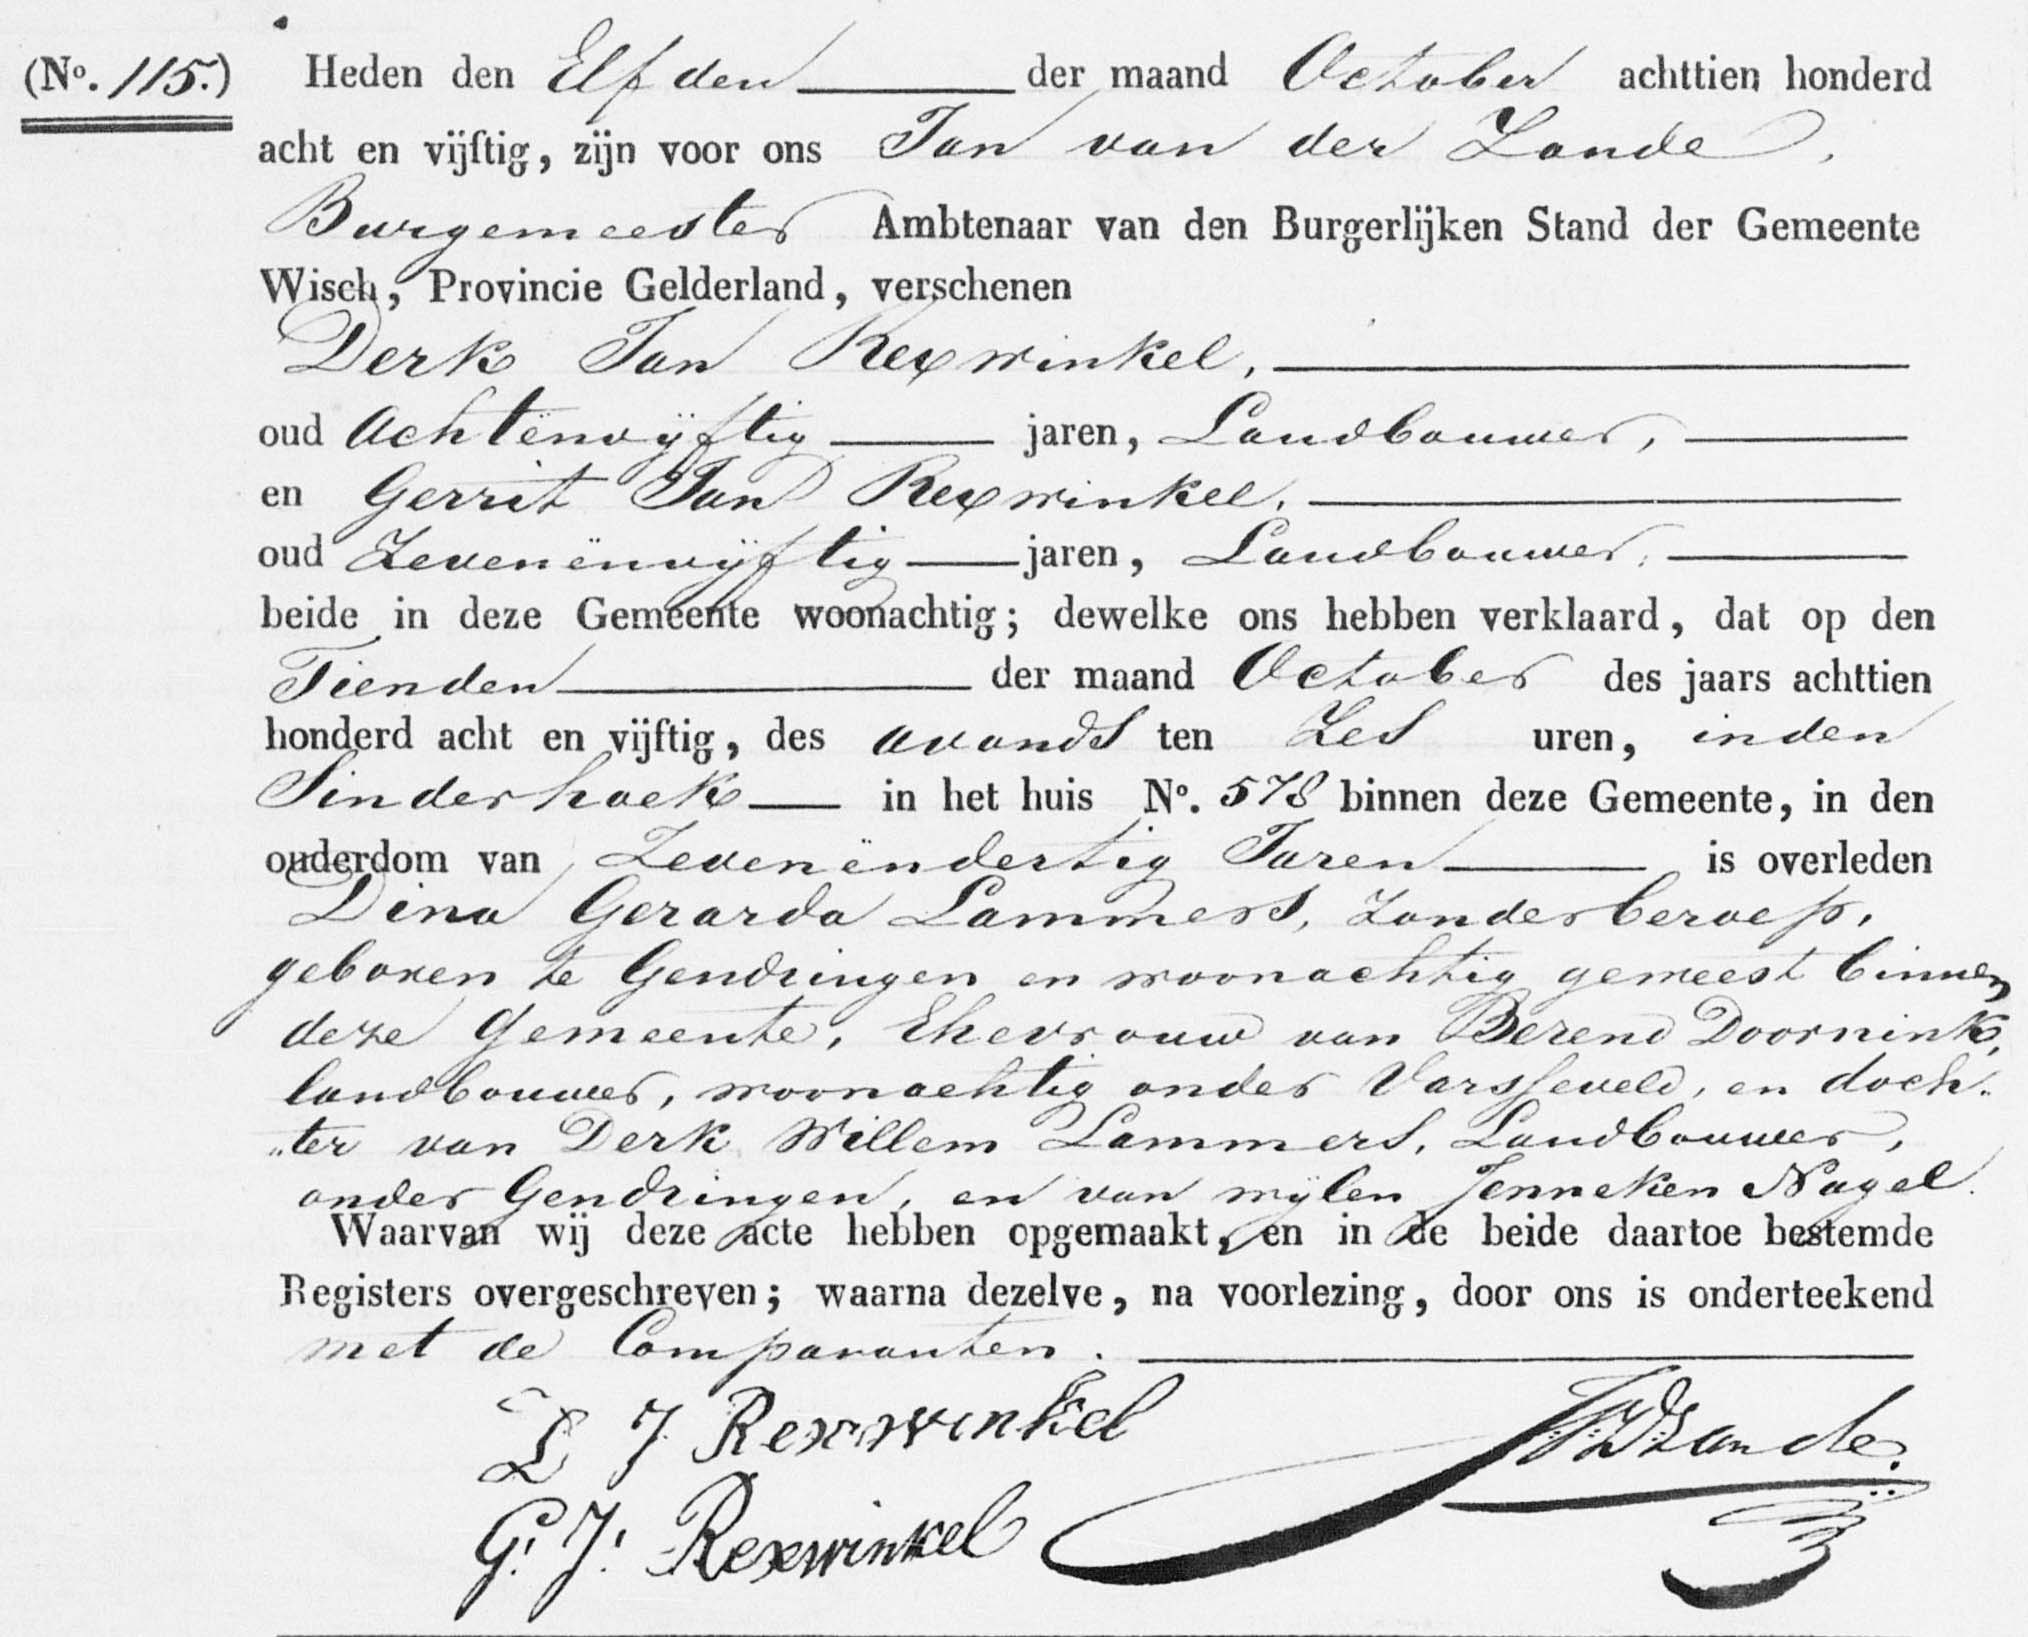 (No. 115.) Heden den Elfden der maand October achttien honderd
acht en vijftig, zijn voor ons Jan van der Zande,
Burgemeester Ambtenaar van den Burgerlijken Stand der Gemeente
Wisch, Provincie Gelderland, verschenen
Derk Jan Rexwinkel,
oud Achtenvijftig jaren, Landbouwer,
en Gerrit Jan Rexwinkel,
oud Zevenënvijftig jaren, Landbouwer,
beide in deze Gemeente woonachtig; dewelke ons hebben verklaard, dat op den
Tienden der maand October des jaars achttien
honderd acht en vijftig, des avonds ten Zes uren, inden
Sinderhoek in het huis No. 578 binnen deze Gemeente, in den
ouderdom van Zevenëndertig Jaren is overleden
Dina Gerarda Lammers, Zonder beroep,
geboren te Gendringen en woonachtig geweest binnen
deze Gemeente, Ehevrouw van Berend Doornink,
landbouwer, woonachtig onder Varsseveld, en doch„
„ter van Derk Willem Lammers, Landbouwer,
onder Gendringen, en van wijlen Jenneken Nagel.
Waarvan wij deze acte hebben opgemaakt, en in de beide daartoe bestemde
Registers overgeschreven; waarna dezelve, na voorlezing, door ons is onderteekend
met de Comparanten.
D J Rexwinkel
JVDZande.
G. J. Rexwinkel